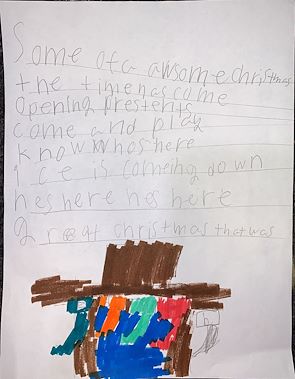 Some of a awsome christmas
the time has come
Opening prestents
come and play
know whos here
ice is comeing down
hes here hes here
great christmas that was